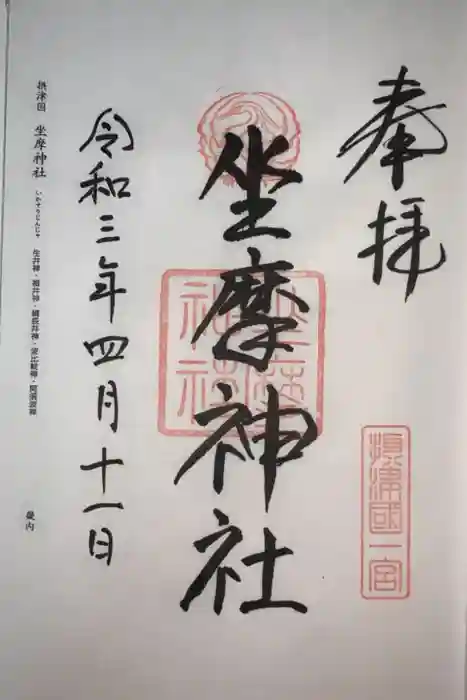 奉拝
摂津國一宮
坐摩神社
令和三年四月十一日
摂津国 坐摩神社 いかすりじんじゃ 生井神・福井神・綱長井神・波比岐神・阿須波神
畿内